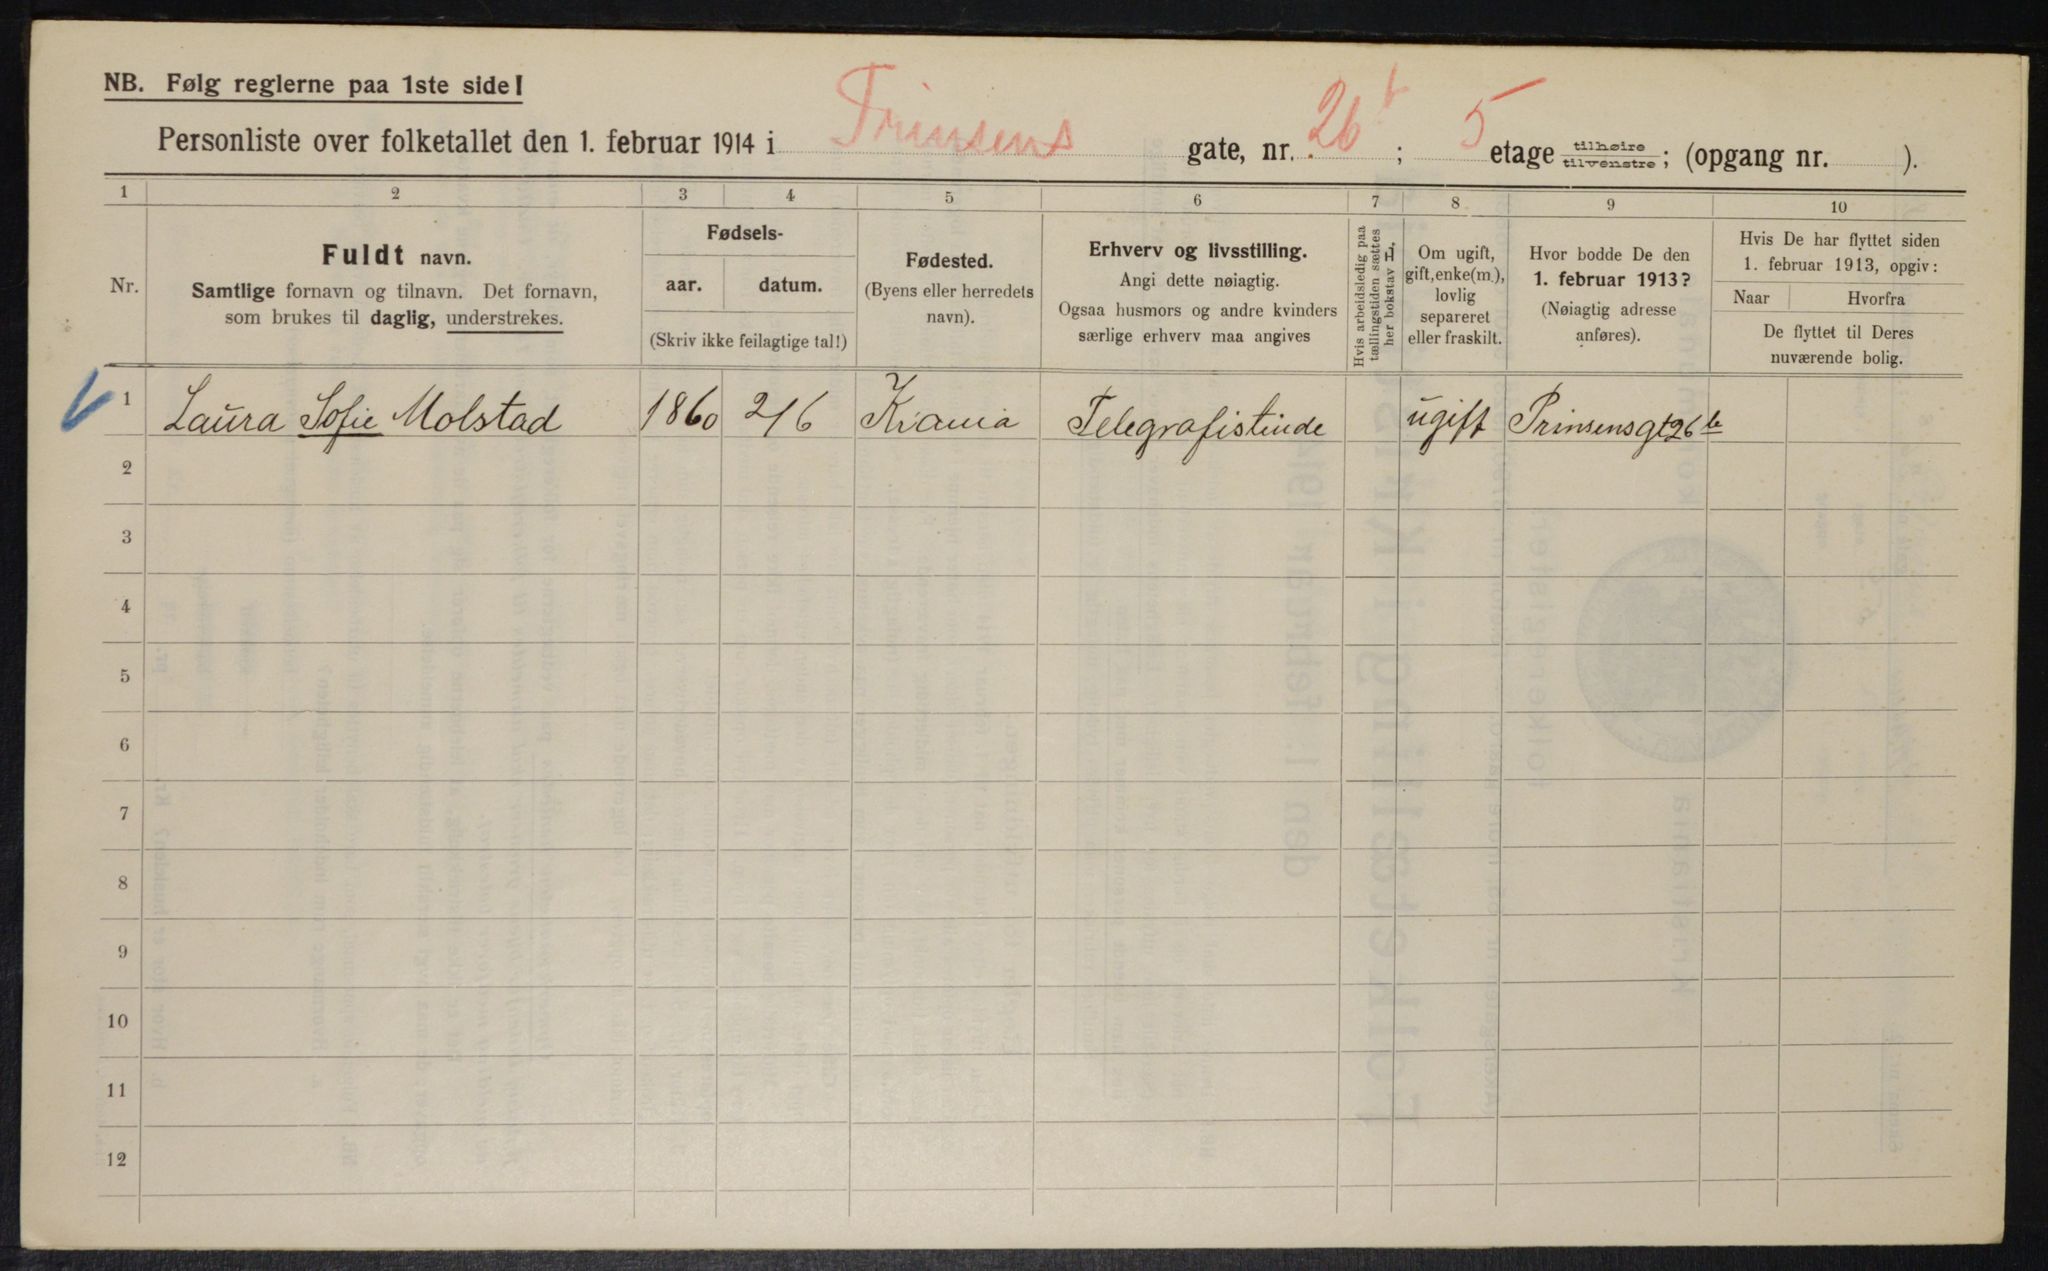 NB. Følg reglerne paa 1ste side!
Personliste over folketallet den 1. februar 1914 i Prinsens gate, nr. 26 b ; 5 etage tilhøire/tilvenstre; (opgang nr. ).
1 2 3 4 5 6 7 8 9 10
Nr.
Fuldt navn.
Samtlige fornavn og tilnavn. Det fornavn,
som brukes til daglig, understrekes.
Fødsels-
aar. datum.
(Skriv ikke feilagtige tal!)
Fødested.
(Byens eller herredets
navn).
Erhverv og livsstilling.
Angi dette nøiagtig.
Ogsaa husmors og andre kvinders
særlige erhverv maa angives
Hvis arbeidsledig paa
tællingstiden sættes
her bokstav L,
Om ugift,
gift, enke(m.),
lovlig
separeret
eller fraskilt.
Hvor bodde De den
1. februar 1913?
(Nøiagtig adresse
anføres).
Hvis De har flyttet siden
1. februar 1913, opgiv:
Naar Hvorfra
De flyttet til Deres
nuværende bolig.
1 Laura Sofie Molstad 1860 2/6 Kiania Telegrafistinde ugift Prinsensgt 26 b
2
3
4
5
6
7
8
9
10
11
12